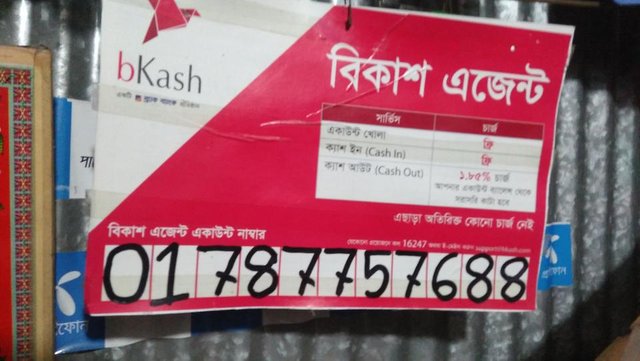 bKash
একটি ব্র্যাক ব্যাংক প্রতিষ্ঠান
বিকাশ এজেন্ট
সার্ভিস চার্জ
একাউন্ট খোলা ফ্রি
ক্যাশ ইন (Cash In) ফ্রি
ক্যাশ আউট (Cash Out) ১.৮৫% চার্জ
আপনার একাউন্ট ব্যালেন্স থেকে
সরাসরি কাটা হবে
এছাড়া অতিরিক্ত কোনো চার্জ নেই
বিকাশ এজেন্ট একাউন্ট নাম্বার
যেকোনো প্রয়োজনে কল 16247 অথবা ই-মেইল করুন support@bkash.com
01787757688